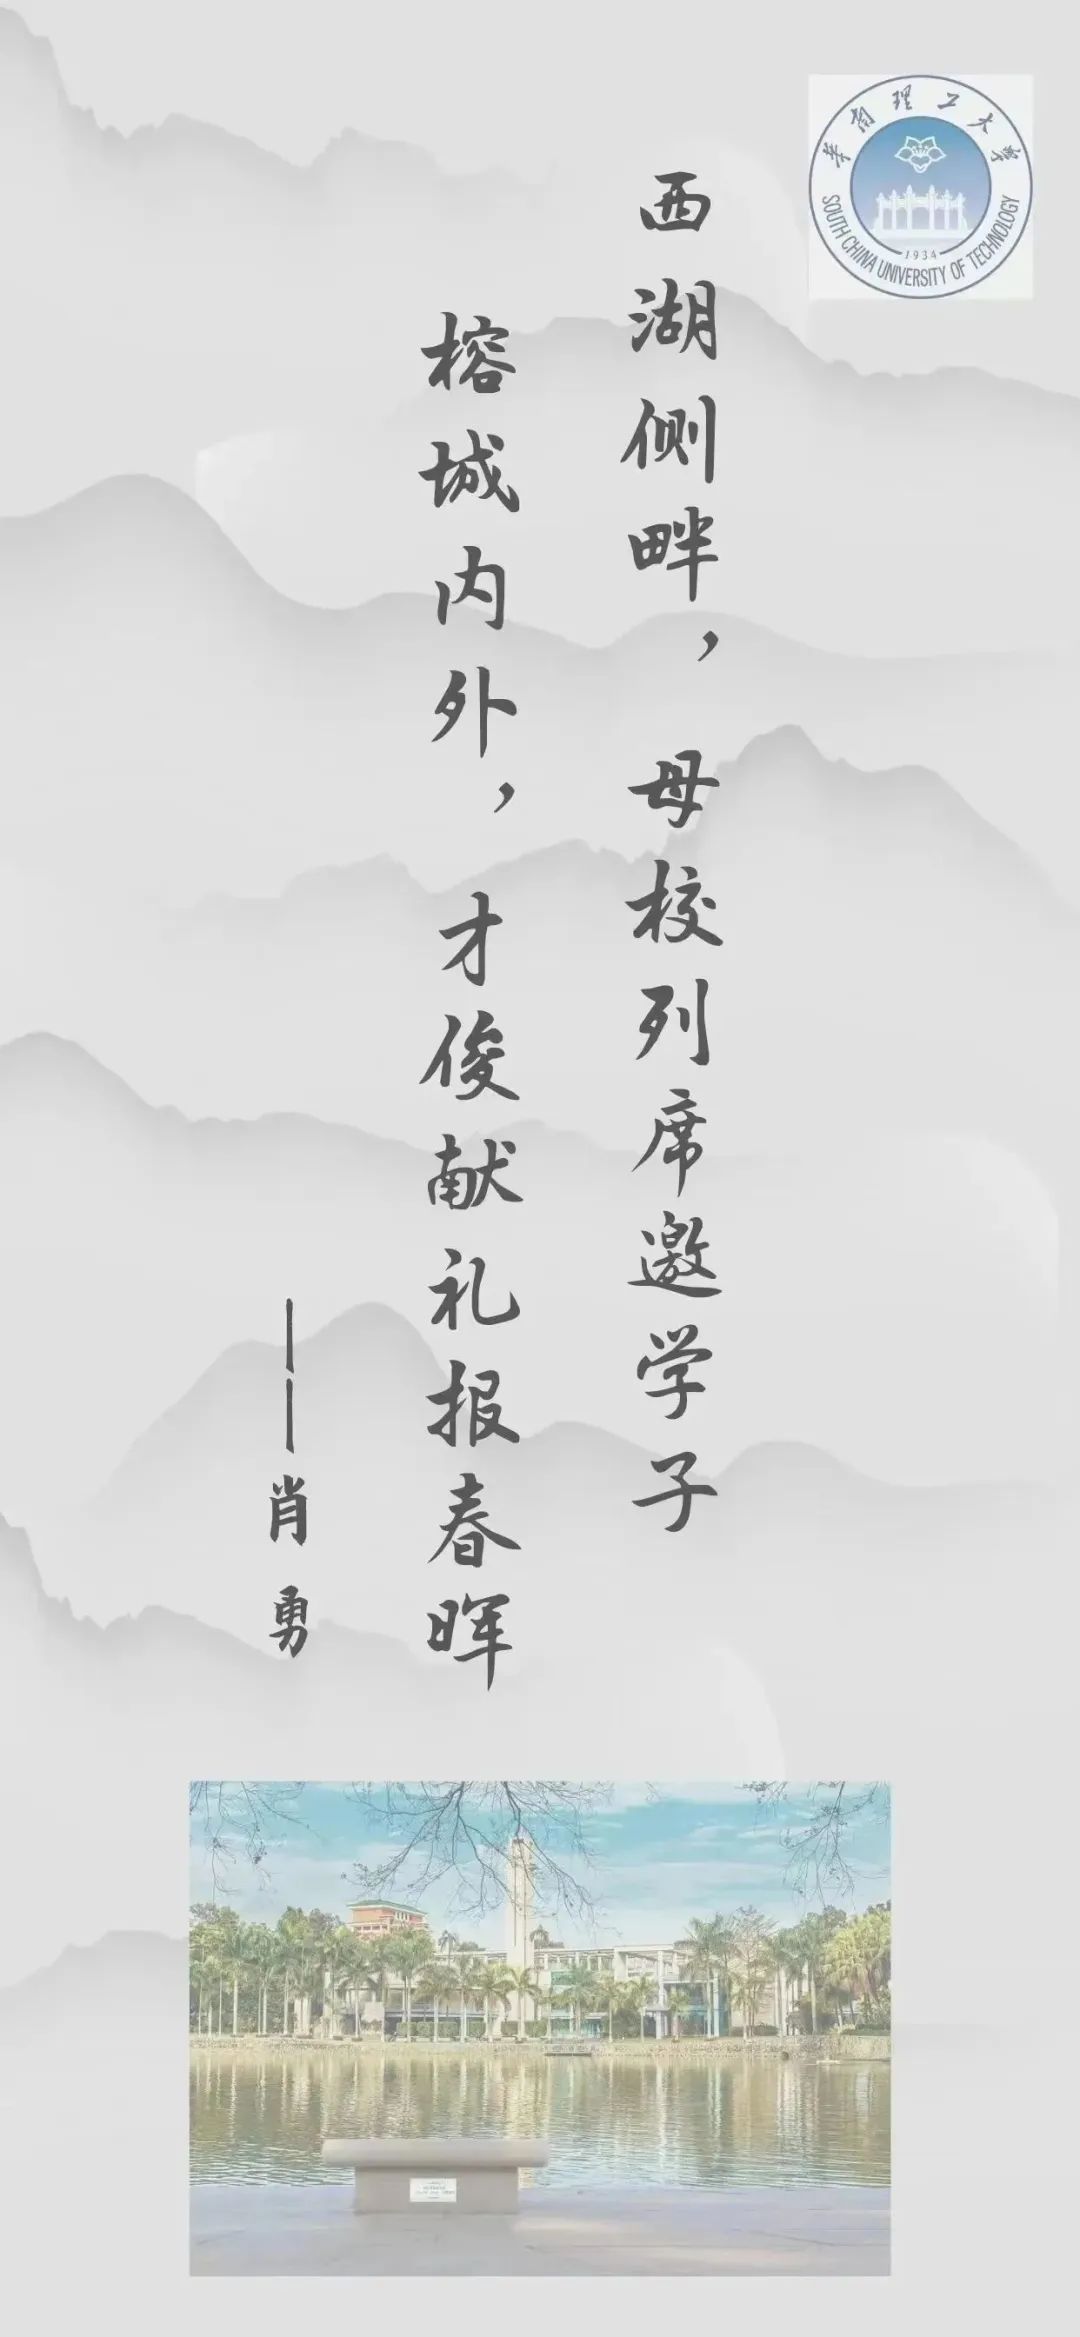 华南理工大学
SOUTH CHINA UNIVERSITY OF TECHNOLOGY
1934
西湖侧畔，母校列席邀学子
榕城内外，才俊献礼报春晖
——肖勇